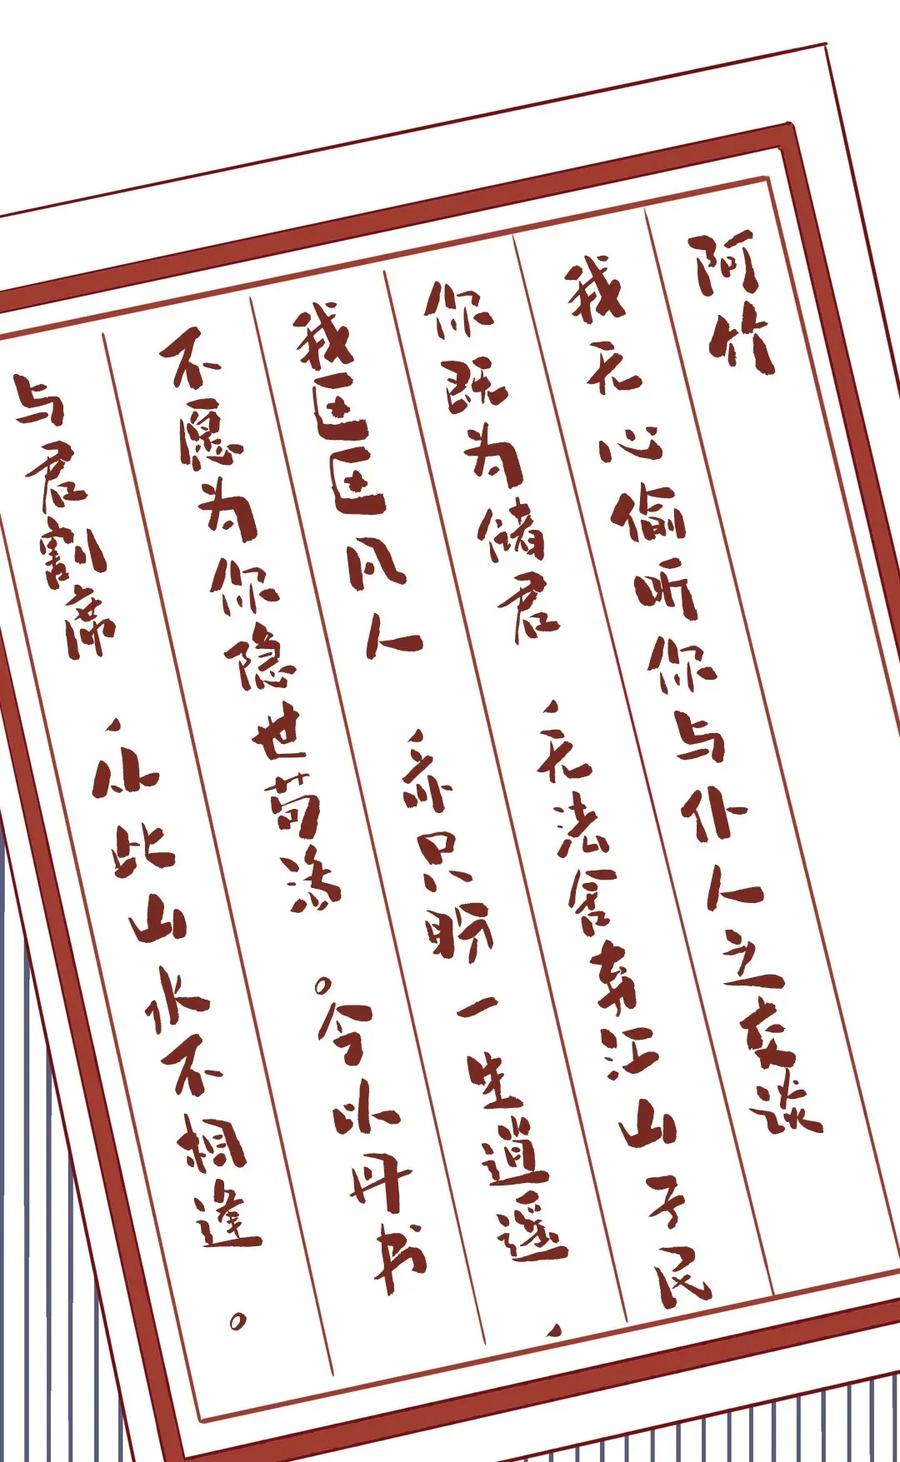 阿竹
我无心偷听你与仆人之交谈
你既为储君，无法舍弃江山子民
我区区凡人，亦只盼一生逍遥，
不愿为你隐世苟活。今以丹书
与君割席，从此山水不相逢。